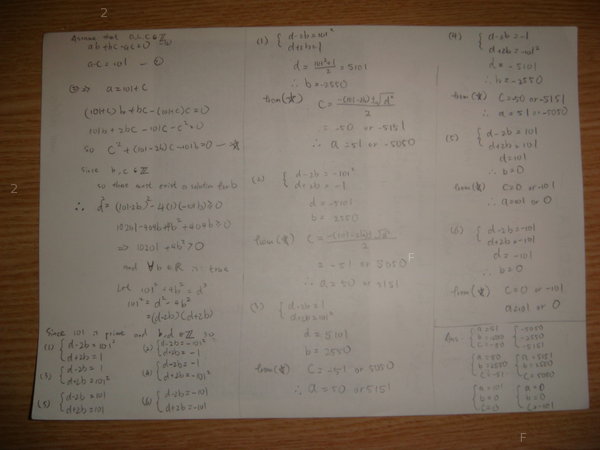 2
Assume that a.b.c ∈ Z
ab+bc-ac=0 -①
a-c=101 -②
② => a=101+c
(101+c)b+bc-(101+c)c=0
101b+2bc-101c-c²=0
so c²+(101-2b)c-101b=0 -☆
since b.c ∈ Z
so there must exist a solution for b
∴ d²=(101-2b)²-4(1)(-101b)≥0
10201-404b+4b²+404b≥0
=> 10201+4b²≥0
and ∀b∈R is true
Let 101²+4b²=d²
101²=d²-4b²
=(d-2b)(d+2b)
Since 101 is prime and b,d ∈ Z so
(1) { d-2b=101²
d+2b=1
(2) { d-2b=-101²
d+2b=-1
(3) { d-2b=1
d+2b=101²
(4) { d-2b=-1
d+2b=-101²
(5) { d-2b=101
d+2b=101
(6) { d-2b=-101
d+2b=-101
(1) { d-2b=101²
d+2b=1
d=(101²+1)/2=5101
∴ b=-2550
from(☆) c=(-(101-2b)±√d²)/2
=-50 or -5151
∴ a=51 or -5050
(2) { d-2b=-101²
d+2b=-1
d=-5101
b=2550
from(☆) c=(-(101-2b)±√d²)/2
=-51 or 5050
∴ a=50 or 5151
(3) { d-2b=1
d+2b=101²
d=5101
b=2550
from(☆) c=-51 or 5050
∴ a=50 or 5151
(4) { d-2b=-1
d+2b=-101²
d=-5101
∴ b=-2550
from(☆) c=-50 or -5151
∴ a=51 or -5050
(5) { d-2b=101
d+2b=101
d=101
∴ b=0
from(☆) c=0 or -101
∴ a=101 or 0
(6) { d-2b=-101
d+2b=-101
d=-101
∴ b=0
from(☆) c=0 or -101
a=101 or 0
Ans: { a=51
b=-2550
c=-50
{ -5050
-2550
-5151
{ a=50
b=2550
c=-51
{ a=5151
b=2550
c=5050
{ a=101
b=0
c=0
{ a=0
b=0
c=-101
2
F
F